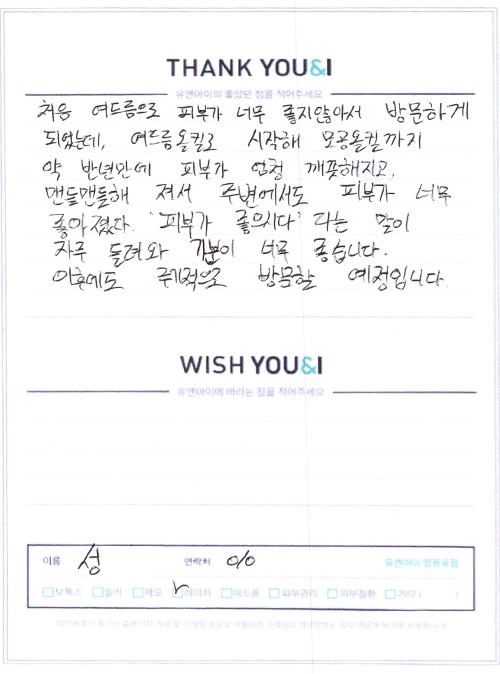 THANK YOU&I
유앤아이의 좋았던 점을 적어주세요
처음 여드름으로 피부가 너무 좋지않아서 방문하게
되었는데, 여드름올킬로 시작해 모공올킬까지
약 반년만에 피부가 엄청 깨끗해지고,
맨들맨들해 져서 주변에서도 피부가 너무
좋아졌다. '피부가 좋으시다' 라는 말이
자주 들려와 기분이 너무 좋습니다.
이후에도 주기적으로 방문할 예정입니다.
WISH YOU&I
유앤아이에 바라는 점을 적어주세요
이름 성 연락처 010 유앤아이 영등포점
보톡스 필러 제모 레이저 여드름 피부관리 피부질환 기타 ( )